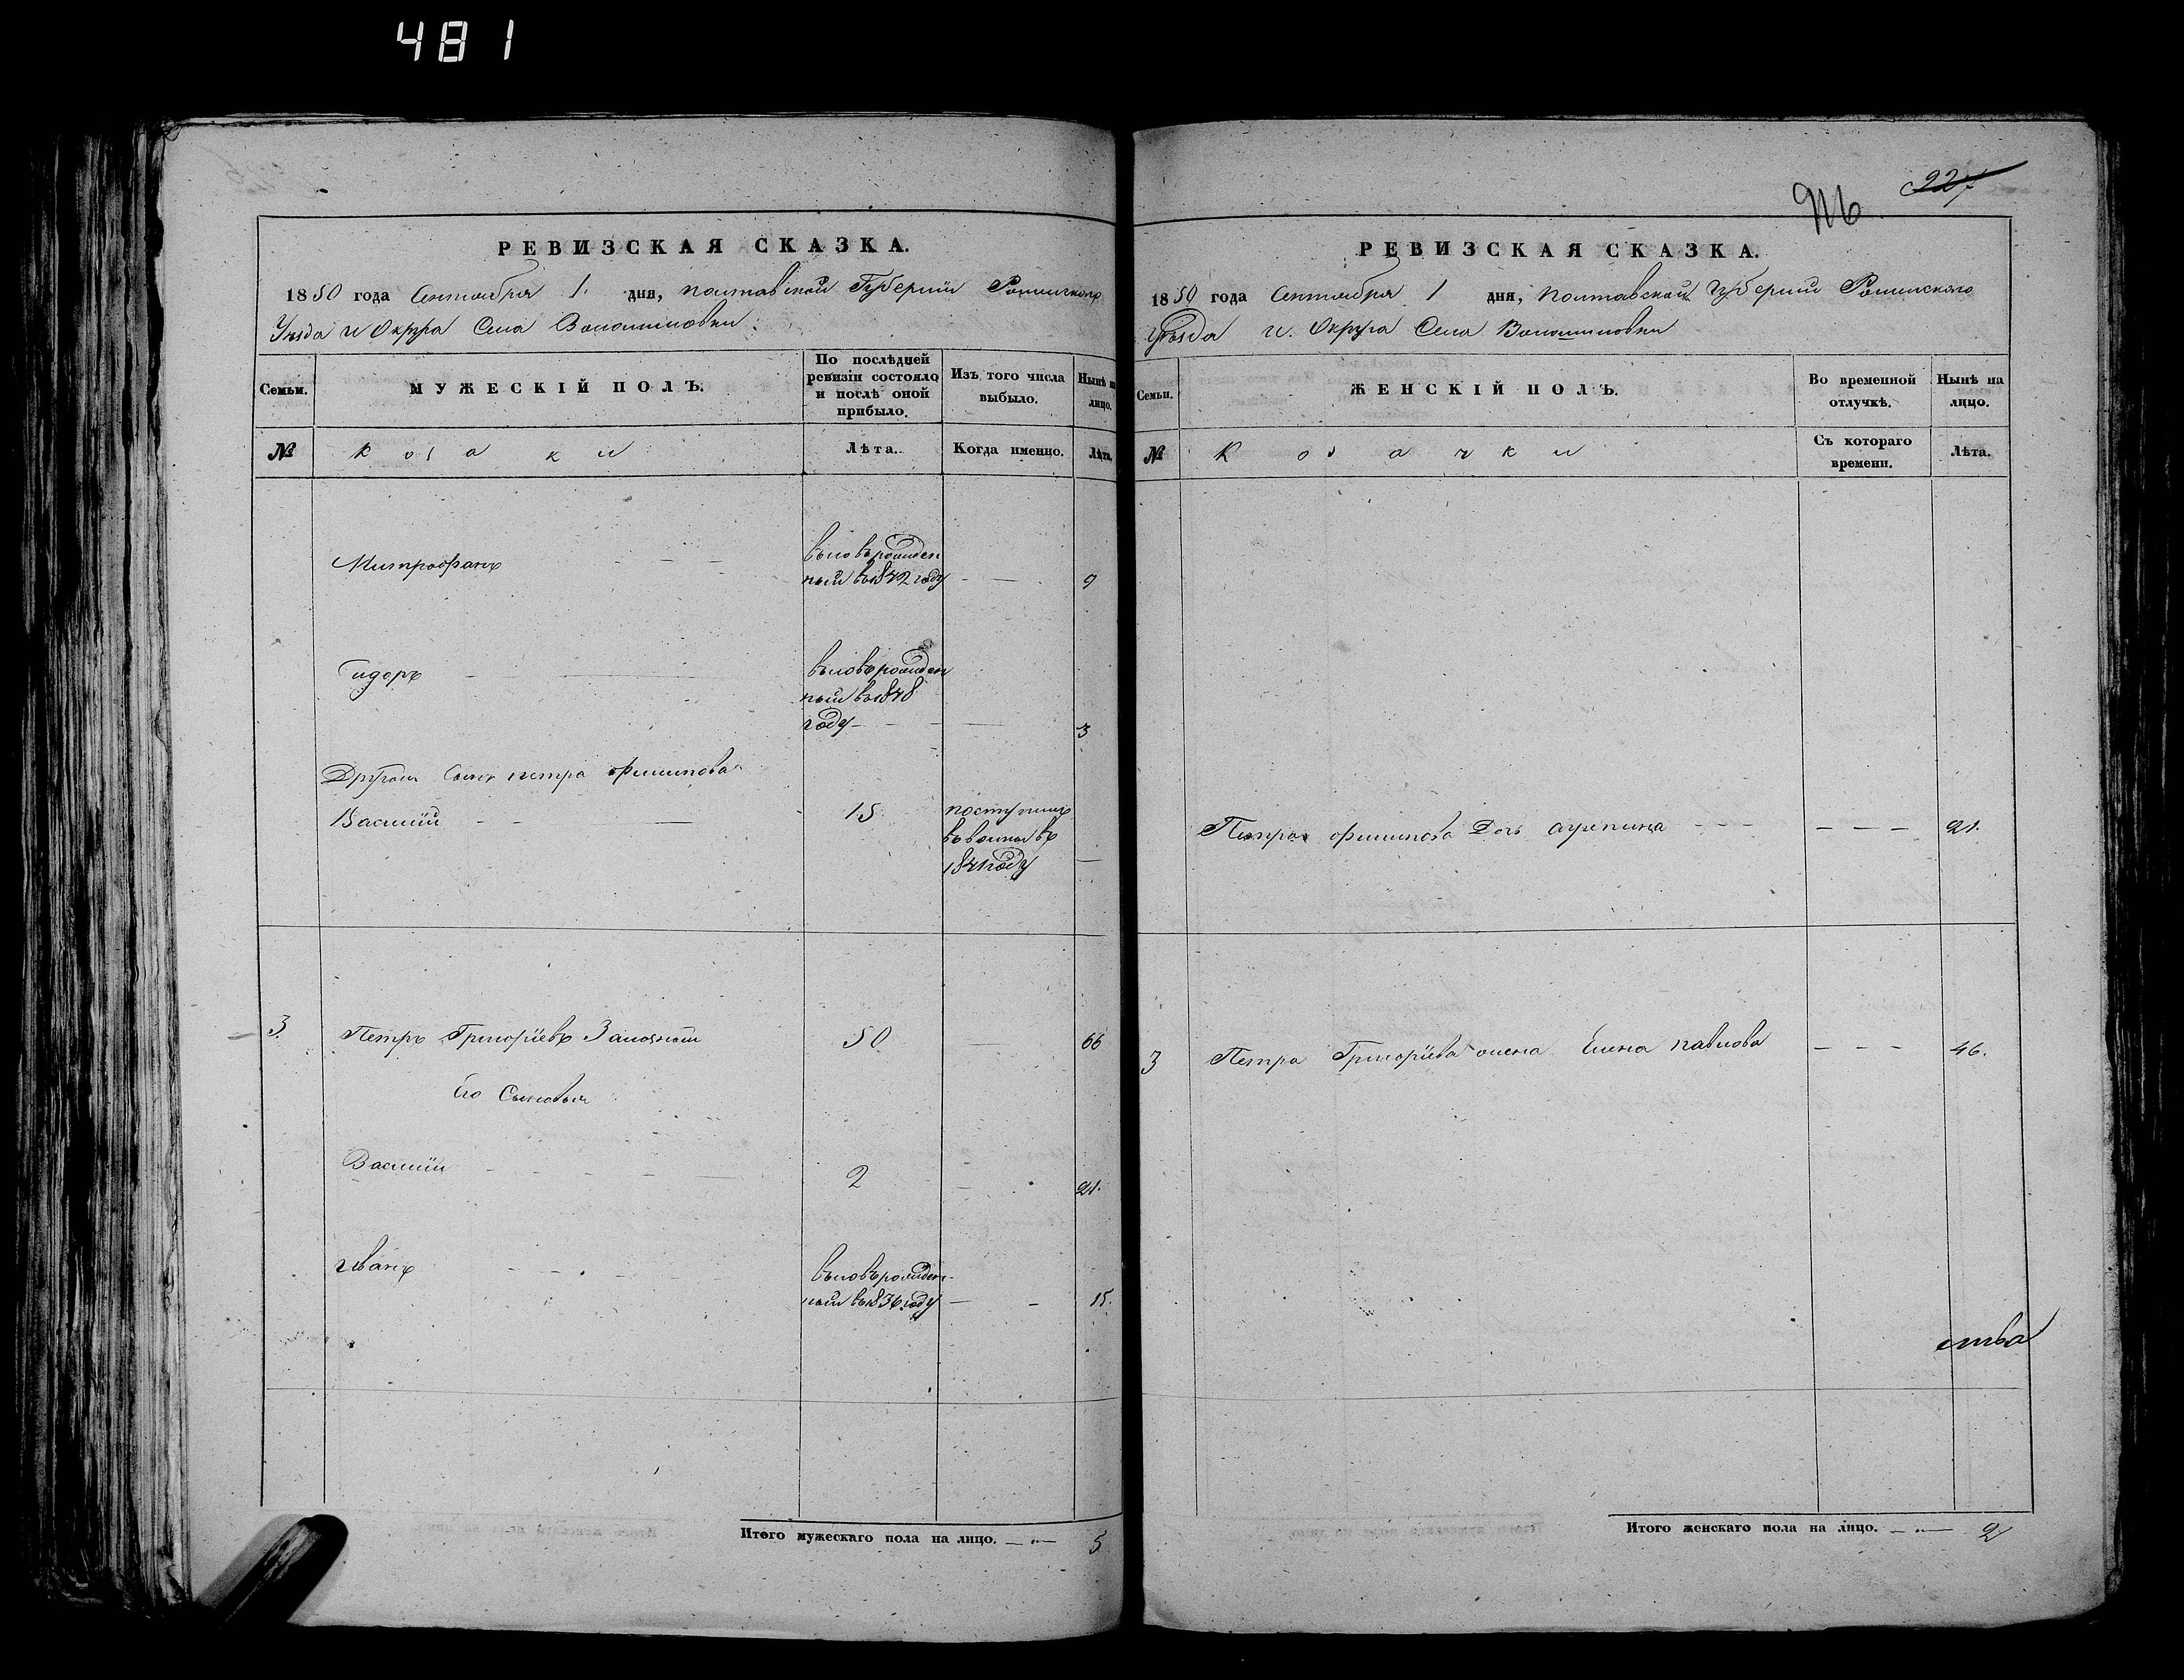 481
РЕВИЗСКАЯ СКАЗКА.
1850 года Сентября 1. дня, Полтавской Губернии Роменского
Уезда и Округа Села Волошиновки.
Семьи.
МУЖЕСКІЙ ПОЛЪ.
По послѣдней ревизіи состояло и послѣ оной прибыло.
Изъ того числа выбыло.
Нынѣ на лицо.
№
Козаки
Лѣта.
Когда именно.
Лѣта.
Митрофанъ — — вьновь рожден
ный въ 1842 году — — 9
Сидоръ — вьновь рожден
ный въ 1848
году — — 3
Другой Сынъ петра филипова
Василий — — 15 поступилъ
въ
1841 году —
3 Петръ Григорїевъ 50 — 66
Его Сыновья
Василий — — 2 — 21.
Иванъ — — вьновь рожден-
ный въ 1836 году — — 15.
Итого мужескаго пола на лицо. — „ — 5
227
РЕВИЗСКАЯ СКАЗКА.
1850 года Сентября 1 дня, Полтавской Губернии Роменского
Уезда и Округа Села Волошиновки
Семьи.
ЖЕНСКІЙ ПОЛЪ.
Во временной отлучкѣ.
Нынѣ на лицо.
№
Козачки
Съ котораго времени.
Лѣта.
Петра филипова Дочь агрепина — — — 21.
3 Петра Григорїева жена Елена павлова — — — 46.
Итого женскаго пола на лицо. — „ — 2